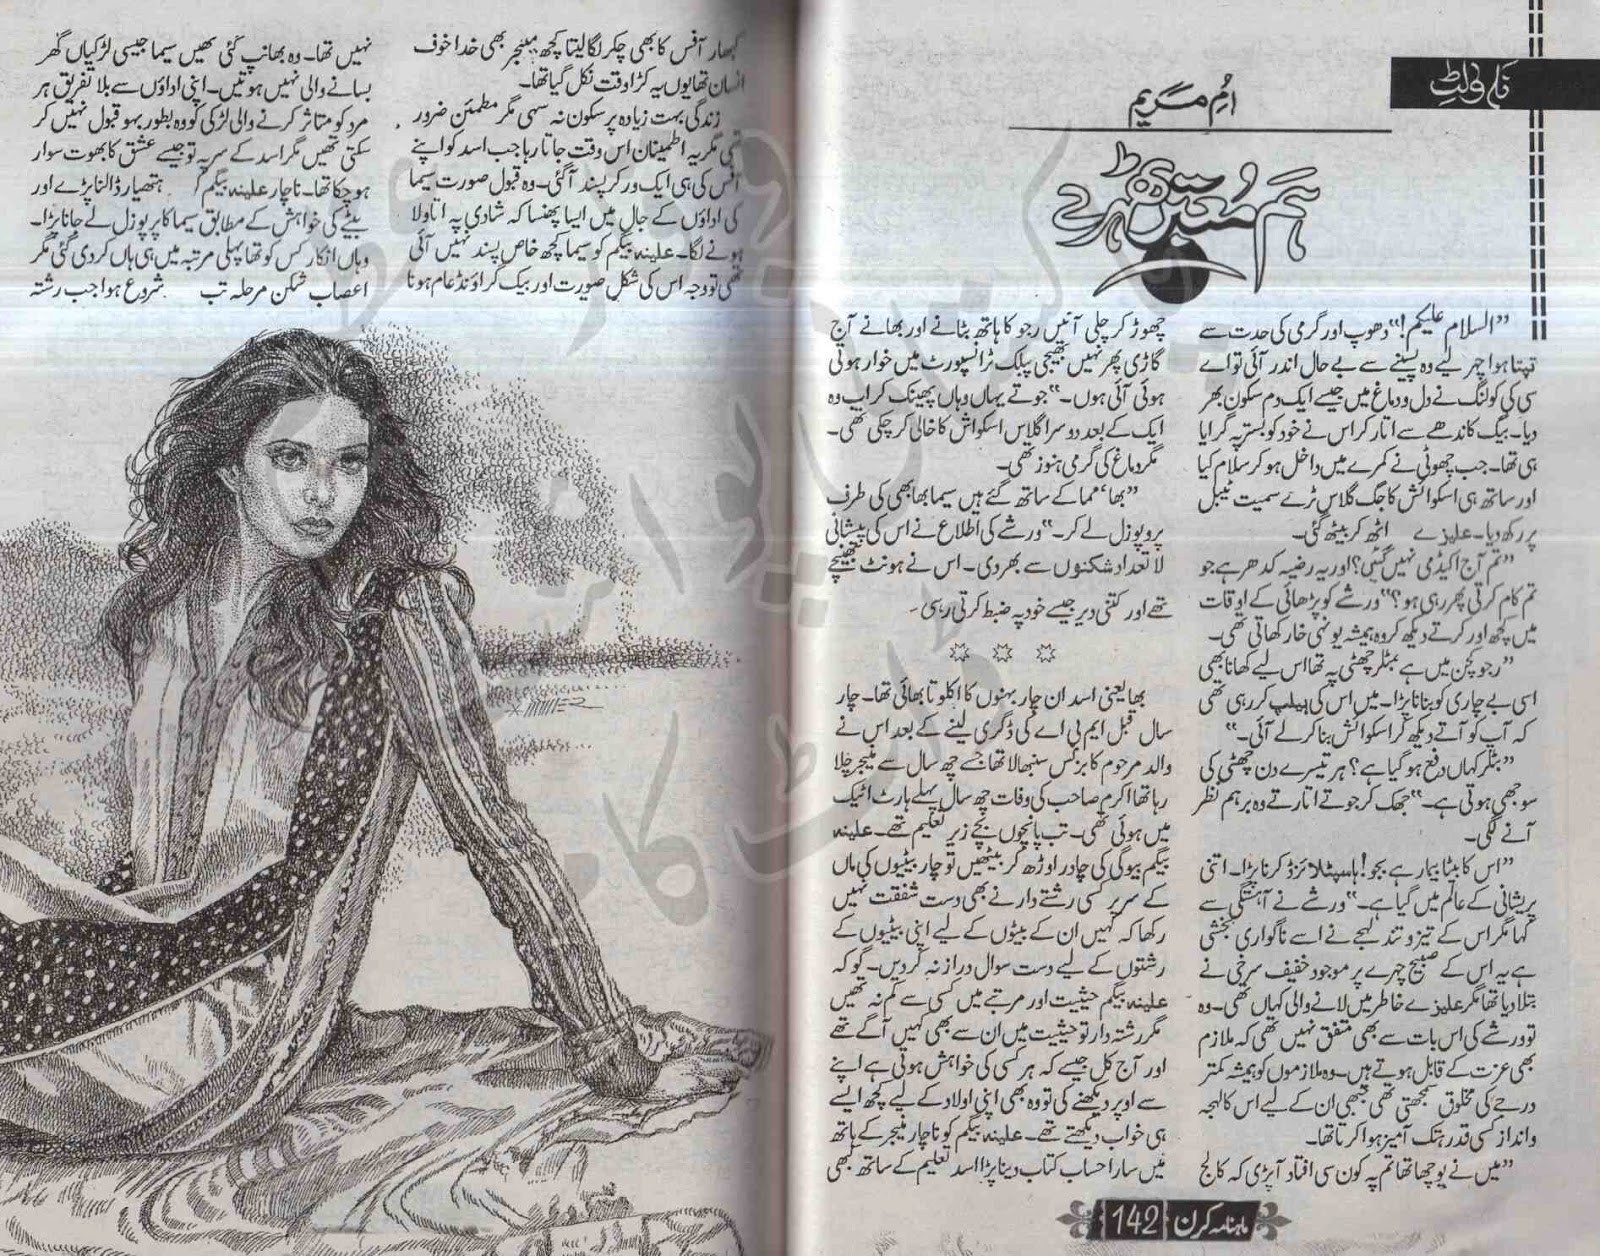 ناولٹ
اُمِ مریم
ہم مُعتبر ٹھہرے
”السلام علیکم!“ دھوپ اور گرمی کی حدت سے
تپتا ہوا چہرہ لیے وہ پسینے سے بے حال اندر آئی تو اے
سی کی کولنگ نے دل و دماغ میں جیسے ایک دم سکون بھر
دیا۔ بیگ کاندھے سے اتار کر اس نے خود کو بستر پہ گرایا
ہی تھا۔ جب چھوٹی نے کمرے میں داخل ہو کر سلام کیا
اور ساتھ ہی اسکواش کا جگ گلاس ٹرے سمیت ٹیبل
پر رکھ دیا۔ علیزے اٹھ کر بیٹھ گئی۔
”تم آج اکیڈمی نہیں گئیں؟ اور یہ رضیہ کدھر ہے جو
تم کام کرتی پھر رہی ہو؟“ ورشے کو پڑھائی کے اوقات
میں کچھ اور کرتے دیکھ کر وہ ہمیشہ یونہی خار کھاتی تھی۔
”رجو کچن میں ہے بٹلر چھٹی پہ تھا اس لیے کھانا بھی
اسی بے چاری کو بنانا پڑا۔ میں اس کی ہیلپ کر رہی تھی
کہ آپ کو آتے دیکھ کر اسکواش بنا کر لے آئی۔“
”بٹلر کہاں دفع ہو گیا ہے؟ ہر تیسرے دن چھٹی کی
سوجھی ہوتی ہے۔“ جھک کر جوتے اتارتے وہ برہم نظر
آنے لگی۔
”اس کا بیٹا بیمار ہے بجو! ہاسپٹلائزڈ کرنا پڑا۔ اتنی
پریشانی کے عالم میں گیا ہے۔“ ورشے نے آہستگی سے
کہا مگر اس کے تیز و تند لہجے نے اسے ناگواری بخشی
ہے یہ اس کے صبیح چہرے پر موجود خفیف سرخی نے
بتلا دیا تھا مگر علیزے خاطر میں لانے والی کہاں تھی۔ وہ
تو ورشے کی اس بات سے بھی متفق نہیں تھی کہ ملازم
بھی عزت کے قابل ہوتے ہیں۔ وہ ملازموں کو ہمیشہ کمتر
درجے کی مخلوق سمجھتی تھی جبھی ان کے لیے اس کا لہجہ
و انداز کسی قدر ہتک آمیز ہوا کرتا تھا۔
”میں نے پوچھا تھا تم پہ کون سی افتاد آ پڑی کہ کالج
چھوڑ کر چلی آئیں رجو کا ہاتھ بٹانے اور بھا نے آج
گاڑی پھر نہیں بھیجی پبلک ٹرانسپورٹ میں خوار ہوتی
ہوئی آئی ہوں۔“ جوتے یہاں وہاں پھینک کر اب وہ
ایک کے بعد دوسرا گلاس اسکواش کا خالی کر چکی تھی۔
مگر دماغ کی گرمی ہنوز تھی۔
”بھا‘ مما کے ساتھ گئے ہیں سیما بھابھی کی طرف
پروپوزل لے کر۔“ ورشے کی اطلاع نے اس کی پیشانی
لاتعداد شکنوں سے بھر دی۔ اس نے ہونٹ بھینچے
تھے اور کتنی دیر جیسے خود پہ ضبط کرتی رہی۔
بھا یعنی اسد ان چار بہنوں کا اکلوتا بھائی تھا۔ چار
سال قبل ایم بی اے کی ڈگری لینے کے بعد اس نے
والد مرحوم کا بزنس سنبھالا تھا جسے چھ سال سے منیجر چلا
رہا تھا اکرم صاحب کی وفات چھ سال پہلے ہارٹ اٹیک
میں ہوئی تھی۔ تب پانچوں بچے زیر تعلیم تھے۔ علینہ
بیگم بیوگی کی چادر اوڑھ کر بیٹھیں تو چار بیٹیوں کی ماں
کے سر پر کسی رشتے دار نے بھی دست شفقت نہیں
رکھا کہ کہیں ان کے بیٹوں کے لیے اپنی بیٹیوں کے
رشتوں کے لیے دست سوال دراز نہ کر دیں۔ گو کہ
علینہ بیگم حیثیت اور مرتبے میں کسی سے کم نہ تھیں
مگر رشتہ دار تو حیثیت میں ان سے بھی کہیں آگے تھے
اور آج کل جیسے کہ ہر کسی کی خواہش ہوتی ہے اپنے
سے اوپر دیکھنے کی تو وہ بھی اپنی اولاد کے لیے کچھ ایسے
ہی خواب دیکھتے تھے۔ علینہ بیگم کو ناچار منیجر کے ہاتھ
میں سارا حساب کتاب دینا پڑا اسد تعلیم کے ساتھ کبھی
ماہنامہ کرن 142
کبھار آفس کا بھی چکر لگا لیتا کچھ منیجر بھی خدا خوف
انسان تھا یوں یہ کڑا وقت نکل گیا تھا۔
زندگی بہت زیادہ پر سکون نہ سہی مگر مطمئن ضرور
تھی مگر یہ اطمینان اس وقت جاتا رہا جب اسد کو اپنے
آفس کی ہی ایک ورکر پسند آ گئی۔ وہ قبول صورت سیما
کی اداؤں کے جال میں ایسا پھنسا کہ شادی پہ اتاولا
ہونے لگا۔ علینہ بیگم کو سیما کچھ خاص پسند نہیں آئی
تھی تو وجہ اس کی شکل صورت اور بیک گراؤنڈ عام ہونا
نہیں تھا۔ وہ بھانپ گئی تھیں سیما جیسی لڑکیاں گھر
بسانے والی نہیں ہوتیں۔ اپنی اداؤں سے بلا تفریق ہر
مرد کو متاثر کرنے والی لڑکی کو وہ بطور بہو قبول نہیں کر
سکتی تھیں مگر اسد کے سر پہ تو جیسے عشق کا بھوت سوار
ہو چکا تھا۔ ناچار علینہ بیگم کو ہتھیار ڈالنا پڑے اور
بیٹے کی خواہش کے مطابق سیما کا پرپوزل لے جانا پڑا۔
وہاں انکار کس کو تھا پہلی مرتبہ میں ہی ہاں کر دی گئی مگر
اعصاب شکن مرحلہ تب شروع ہوا جب رشتہ